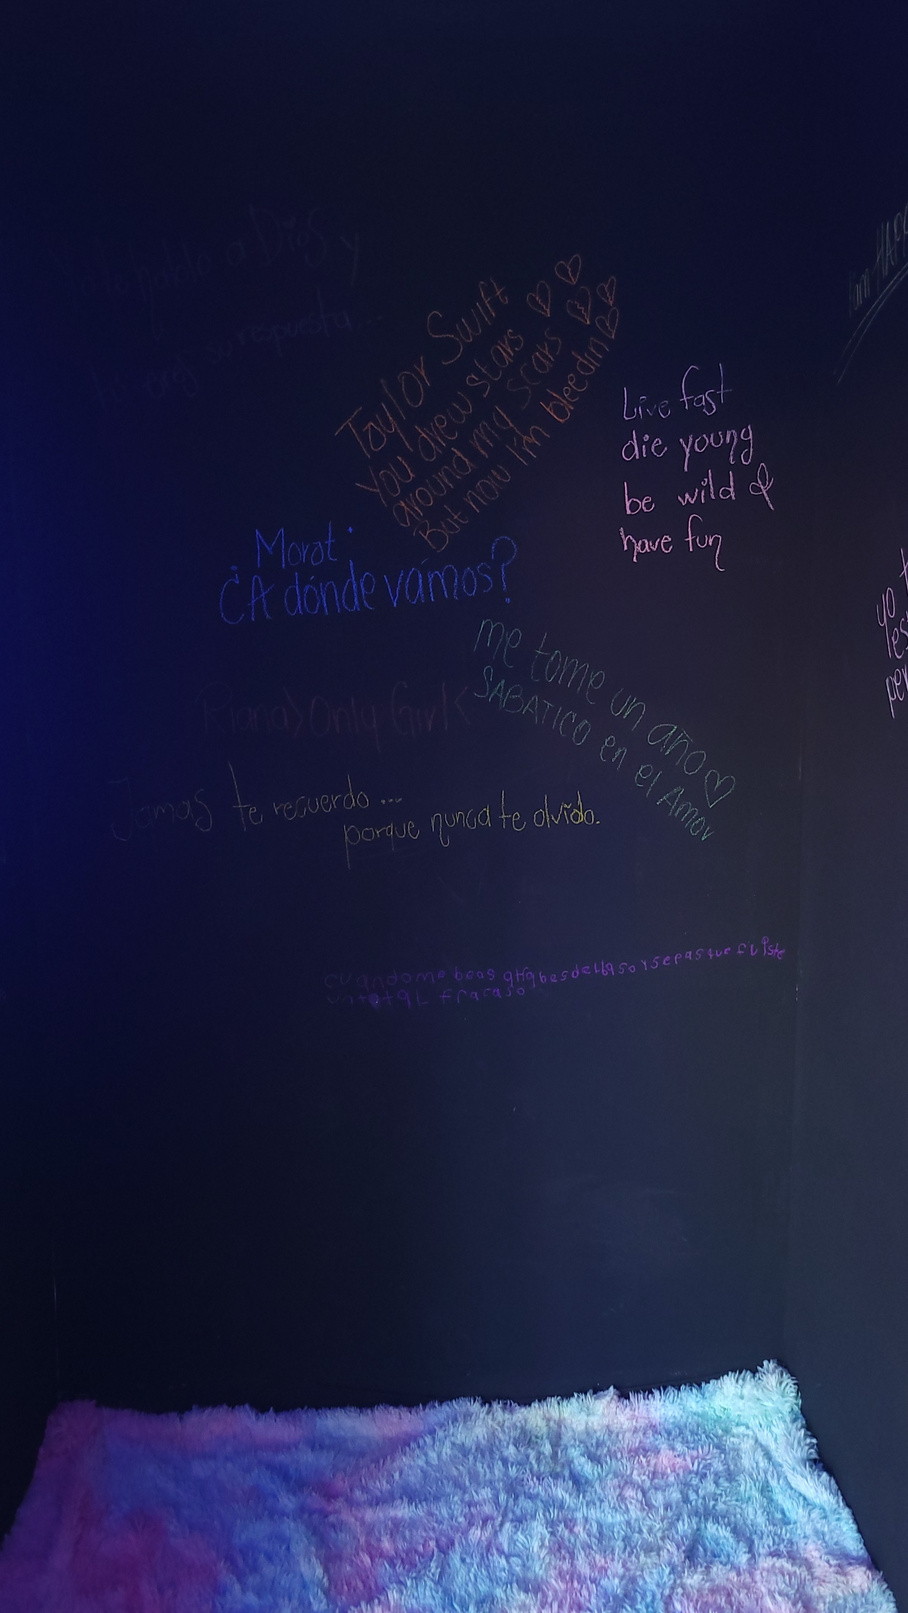 a Dios y
respuesta...
I am HAPP
Taylor Swift
You drew stars
around my scars
But now I'm bleedin
Live fast
die young
be wild &
have fun
Morat:
¿A dónde vamos?
me tome un año
SABATICO en el Amor
Riana>Only Girl<
Jamas te recuerdo...
porque nunca te olvido.
yo
cuando me beas
sepas que fuiste
un total fracaso